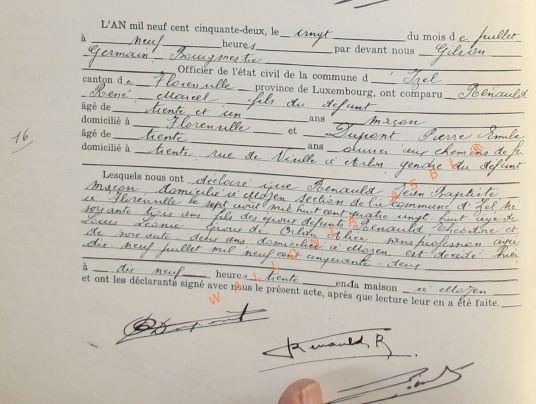 L'AN mil neuf cent cinquante-deux, le vingt du mois de juillet
à neuf heures par devant nous Gilson
Germain Bourgmestre
Officier de l'état civil de la commune d' Izel
canton de Florenville province de Luxembourg, ont comparu Renauld
René Marcel fils du défunt
âgé de trente et un ans maçon
domicilié à Florenville et Dupont Pierre Emile
16
âgé de trente ans ouvrier aux chemins de fer
domicilié à rue de Virelle à Arlon, gendre du défunt
Lesquels nous ont déclaré que Renauld Jean Baptiste
maçon, domicilié à Moyen section de la commune d'Izel né
à Florenville le sept avril mil huit cent quatre vingt huit âgé de
soixante ans, fils des défunts Renauld Théodore et
Louis époux de Alice sans profession âgée
de soixante deux ans domiciliée à Moyen est décédé hier
dix neuf juillet mil neuf cent cinquante deux
à dix neuf heures trente en da maison à Moyen
et ont les déclarants signé avec nous le présent acte, après que lecture leur en a été faite.
WALLONIA ASBL
Renauld R.